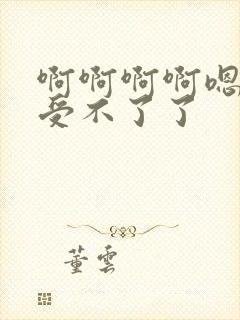 啊啊啊啊嗯
受不了了
董雲